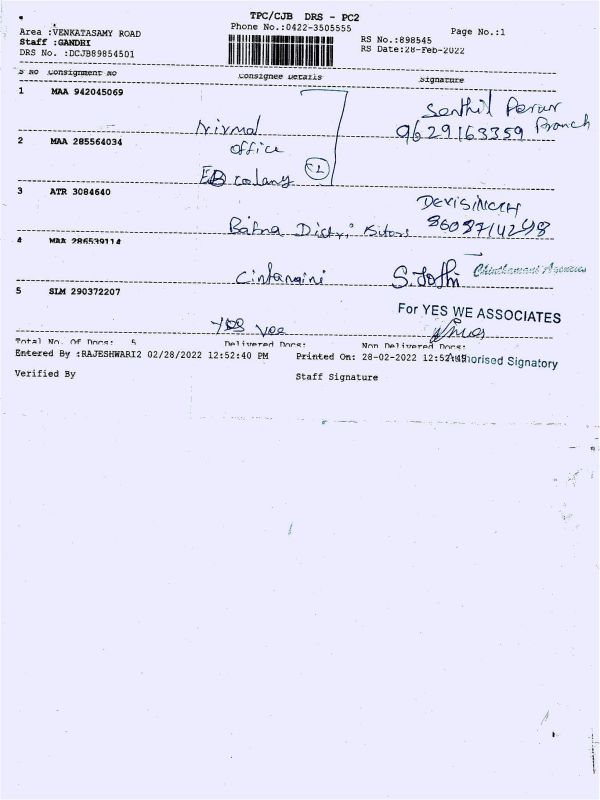 TPC/CJB DRS - PC2
Phone No.:0422-3505555
Page No.:1
Area :VENKATASAMY ROAD
Staff :GANDHI
DRS No. :DCJB89854501
RS No.:898545
RS Date:28-Feb-2022
S NO Consignment No Consignee Details Signature
1 MAA 942045069
Senthil
9629163359 Branch
Nirmal
2 MAA 285564034
office
EB colany
3 ATR 3084640
DEVISINGH
8608714298
Bafna
4 MAA 286539114
Cintamini S. Jothi Chinthamani Agencies
5 SLM 290372207
For YES WE ASSOCIATES
Yes Vee
Total No. Of Docs: 5 Delivered Docs: Non Delivered Docs:
Entered By :RAJESHWARI2 02/28/2022 12:52:40 PM Printed On: 28-02-2022 12:52:49
Authorised Signatory
Verified By Staff Signature